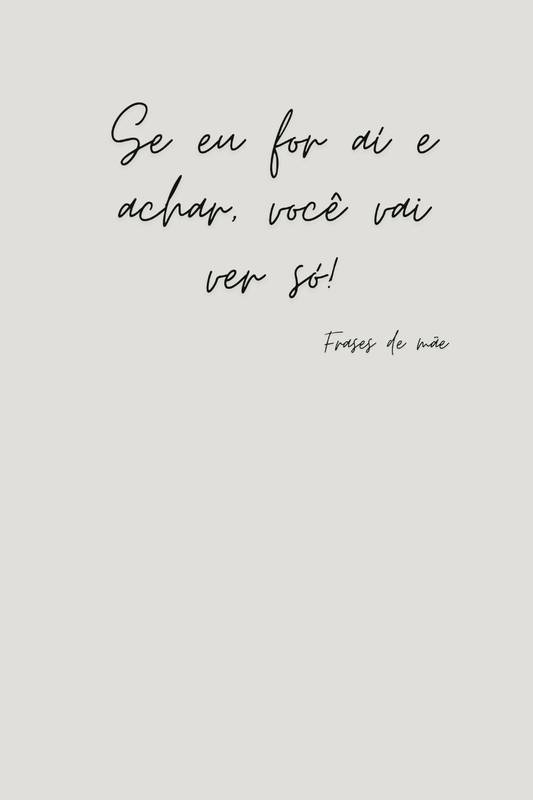 Se eu for aí e
achar, você vai
ver só!
Frases de mãe